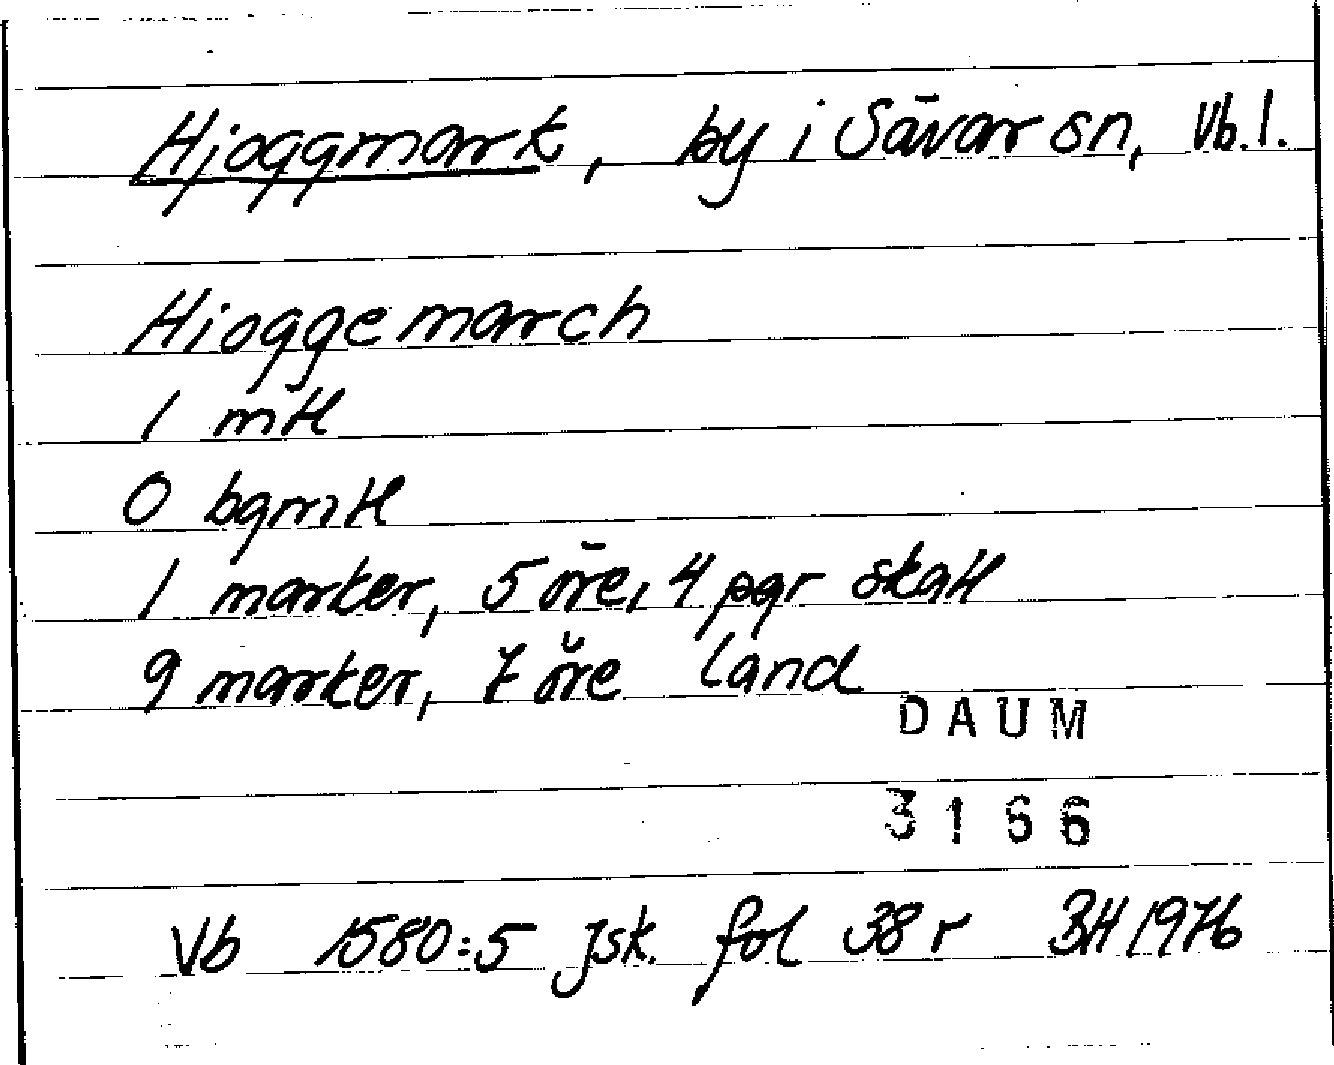 Hjoggmark, by i Sävar sn, Vb.l.
Hioggemarch
1 mtl
0 bgmtl
1 marker, 5 öre, 4 pgr skatt
9 marker, 7 öre land
DAUM
3166
Vb 1580:5 Jsk. fol 38 r BH 1976